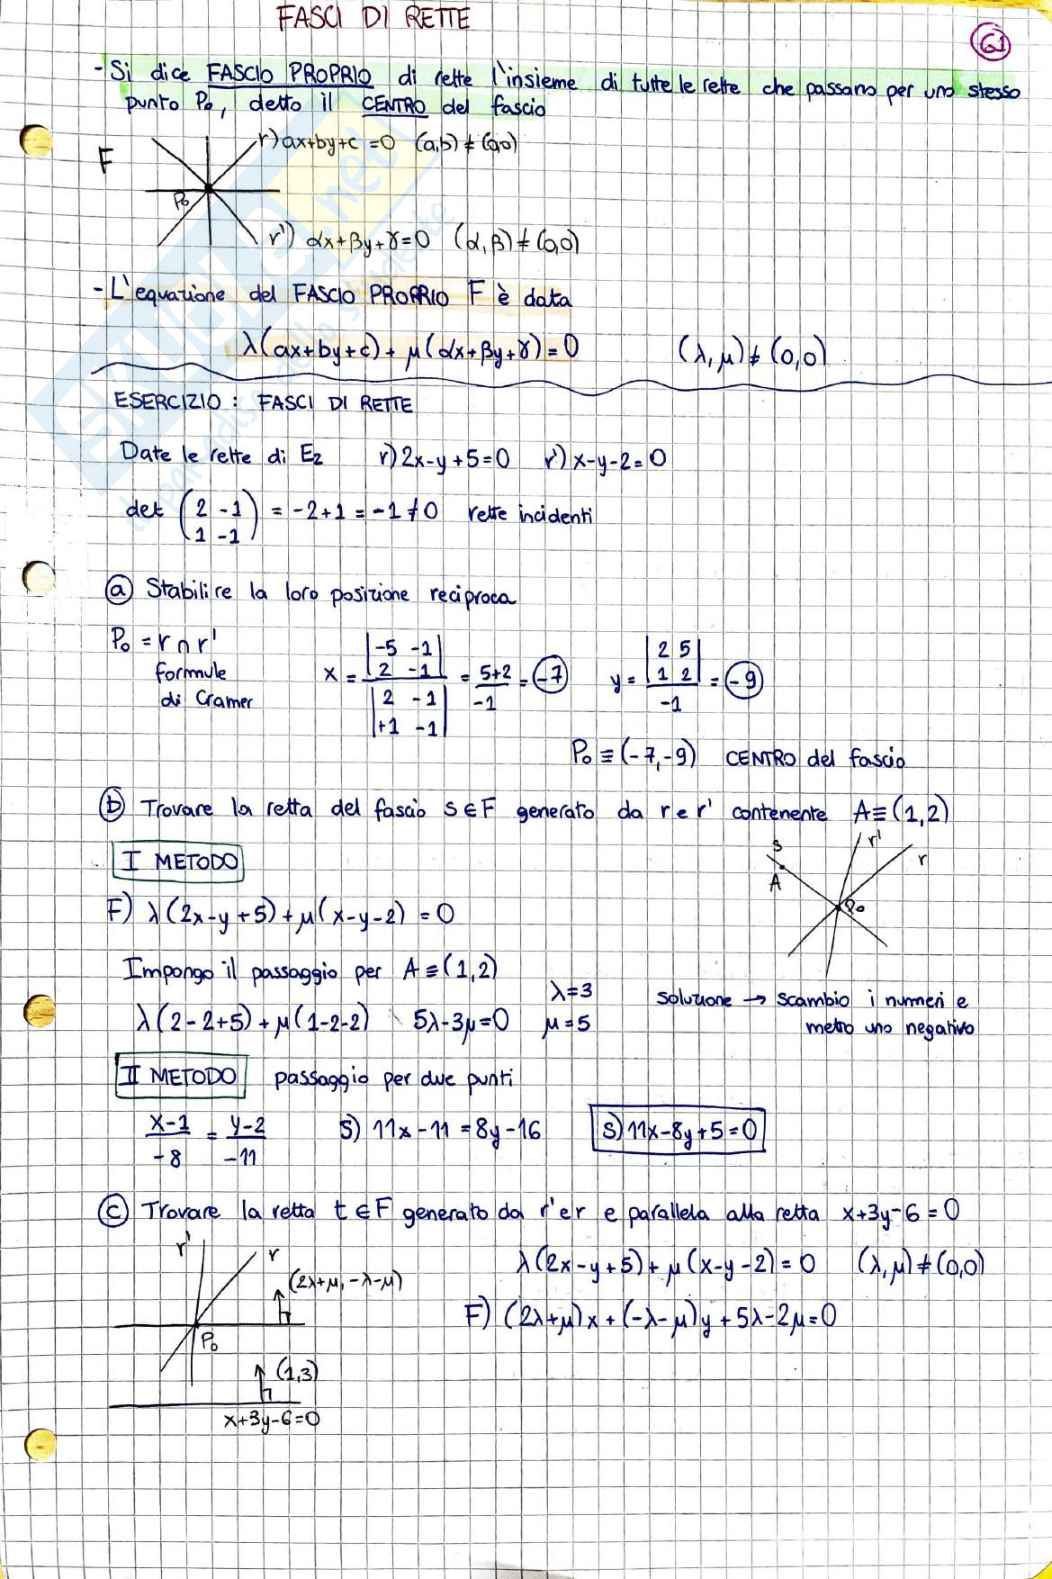 FASCI DI RETTE
61
- Si dice FASCIO PROPRIO di rette l'insieme di tutte le rette che passano per uno stesso
punto P₀, detto il CENTRO del fascio
F r) ax+by+c=0 (a,b)≠(0,0)
P₀
r') αx+βy+γ=0 (α,β)≠(0,0)
- L'equazione del FASCIO PROPRIO F è data
λ(ax+by+c)+μ(αx+βy+γ)=0 (λ,μ)≠(0,0)
ESERCIZIO: FASCI DI RETTE
Date le rette di E₂ r) 2x-y+5=0 r') x-y-2=0
det (2 -1
1 -1) = -2+1 = -1≠0 rette incidenti
(a) Stabilire la loro posizione reciproca
P₀ = r∩r'
formule
di Cramer
x = |-5 -1
2 -1| / |2 -1
+1 -1| = 5+2 / -1 = -7
y = |2 5
1 2| / -1 = -9
P₀≡(-7,-9) CENTRO del fascio
(b) Trovare la retta del fascio s∈F generato da r e r' contenente A≡(1,2)
I METODO
s r' r
A P₀
F) λ(2x-y+5)+μ(x-y-2)=0
Impongo il passaggio per A≡(1,2)
λ(2-2+5)+μ(1-2-2) 5λ-3μ=0 λ=3
μ=5
soluzione → scambio i numeri e
metto uno negativo
II METODO passaggio per due punti
x-1 / -8 = y-2 / -11 s) 11x-11=8y-16 s) 11x-8y+5=0
(c) Trovare la retta t∈F generato da r' e r e parallela alla retta x+3y-6=0
r' r
(2λ+μ, -λ-μ)
P₀
(1,3)
x+3y-6=0
λ(2x-y+5)+μ(x-y-2)=0 (λ,μ)≠(0,0)
F) (2λ+μ)x+(-λ-μ)y+5λ-2μ=0